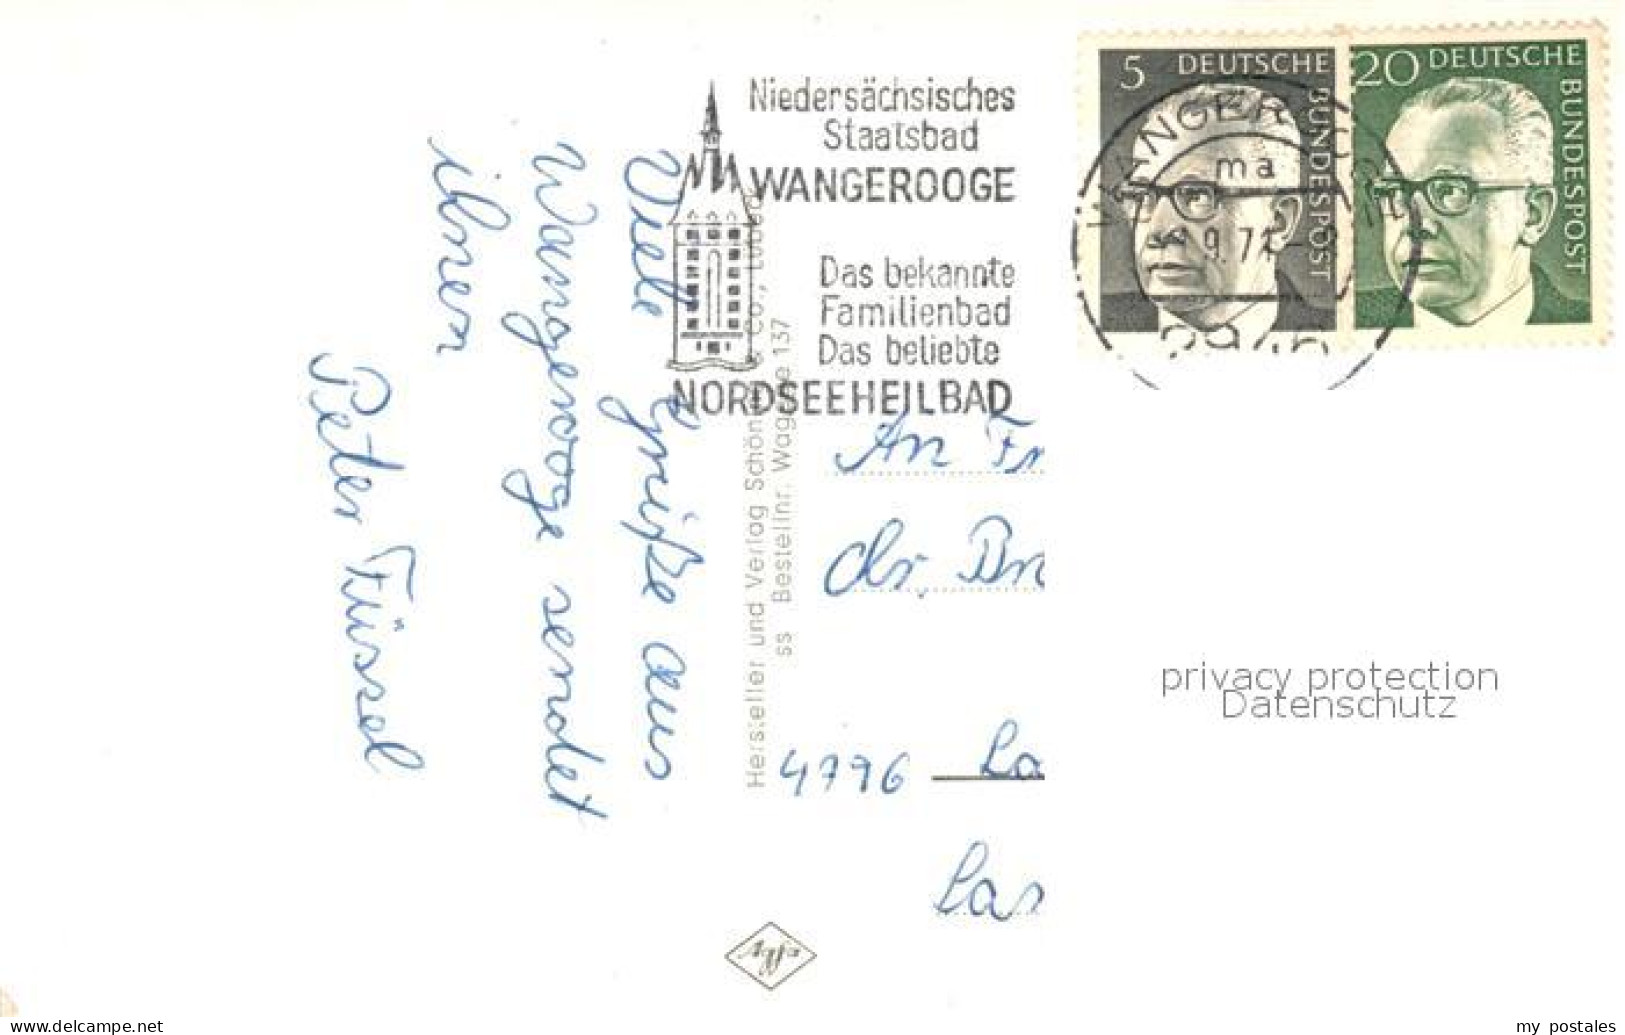 Niedersächsisches
Staatsbad
WANGEROOGE
Das bekannte
Familienbad
Das beliebte
NORDSEEHEILBAD
5 DEUTSCHE
BUNDESPOST
20 DEUTSCHE
BUNDESPOST
ma
Viele Grüße aus
Wangerooge sendet
ihnen
Peter Füssel
Hersteller und Verlag Schöning & Co., Lübeck
ss Bestellnr. Wagge 137
An Fr
dr. Br
4796 La
Las
Agfa
privacy protection
Datenschutz
www.delcampe.net
my_postales